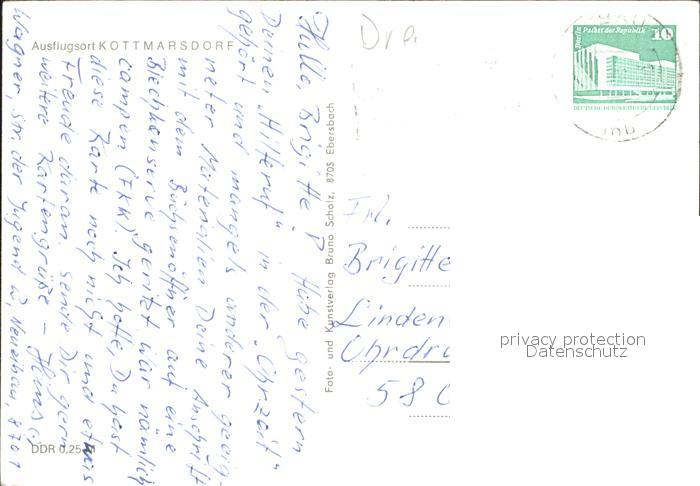 Ausflugsort KOTTMARSDORF
Hallo, Brigitte! Habe gestern
Deinen „Hilferuf“ in der „Uhrzeit“
gehört und mangels anderer geeig-
neter Materialien Deine Anschrift
mit dem Büchsenöffner auf eine
Blechkonserve geritzt. War nämlich
campen (FKK). Ich hoffe, Du hast
diese Karte noch nicht und etwas
Freude daran. Sende Dir gern
weitere Kartengrüße –
Wagner, Str. der Jugend 8701
DDR 0,25 M
Foto- und Kunstverlag Bruno Scholz, 8705 Ebersbach
Berlin Palast der Republik
10
DEUTSCHE DEMOKRATISCHE REPUBLIK
Frl.
Brigitte
Linden
Ohrdru
58
privacy protection
Datenschutz